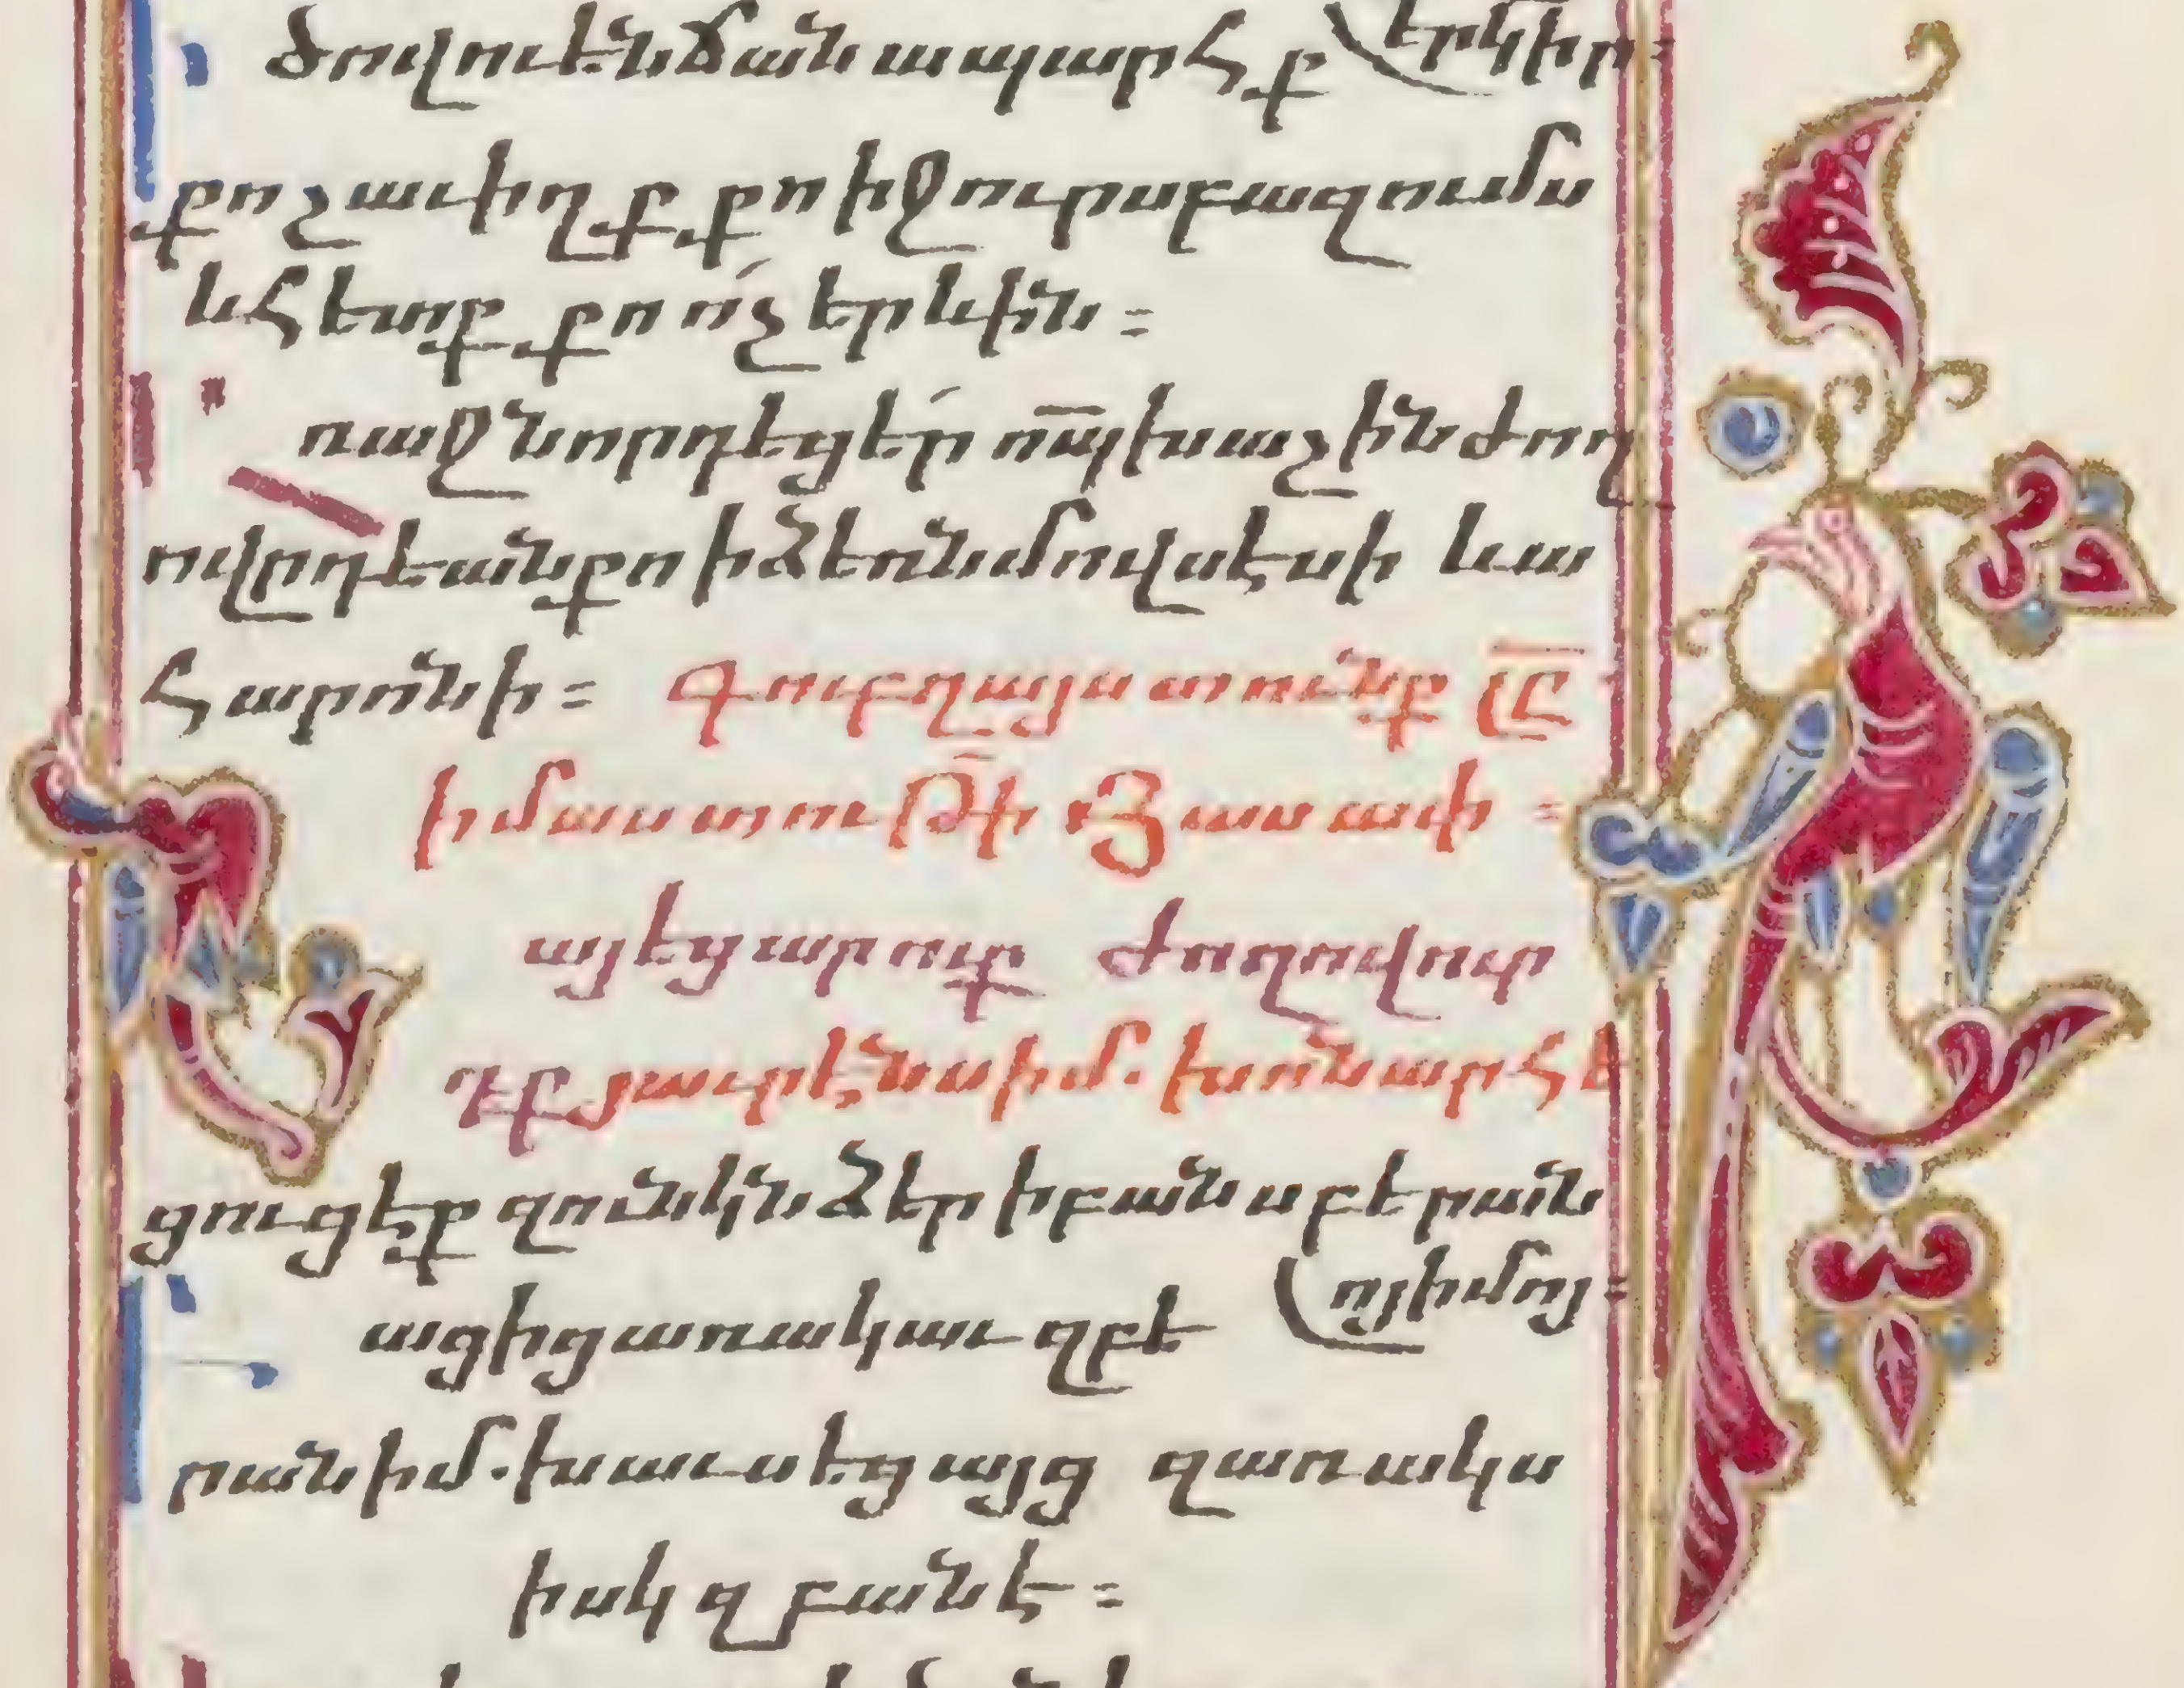 ծովու են ճանապարհք երկիր։
քո շաւիղք քո ի ջուրս բազումս
և հետք քո ո՛չ երևին։
ռաջնորդեցե՛ր ո̅պ խաշին ժող
ովրդեան քո ի ձեռն մովսէսի և ա
հարոնի։ Գուբղայս տունք Լ̅Ը̅
իմաստութ̅ի Յասափ։
այեցարուք ժողովուր
դք յաւրէնս իմ. խոնարհե
ցուցէք զունկն ձեր ի բանս բերան
ոյ իմոյ։
ացից առակաւ զբե
րան իմ. խաւսեցայց զառակս
ի սկզբանէ։